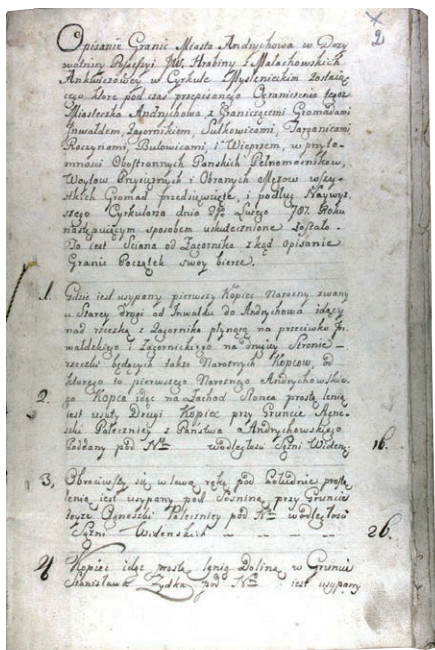 2
Opisanie Granic Miasta Andrychowa w Dozy
wotniey Possessyi JW. Hrabiny z Małachowskich
Ankwiczowey w Cyrkule Myslenickim zostaią
cego ktore pod czas przepisanego Ograniczenia tegoż
Miasteczka Andrychowa z Graniczącemi Gromadami
Inwałdem, Zagornikiem, Sułkowicami, Targanicami
Roczynami, Bulowicami, i Wieprzem, w przyto
mności Obostronnych Panskich Pełnomocnikow,
Woytow Przysięznych i Obranych Męzow wszy
stkich Gromad przedsięwzięte, i podług Naywyż
szego Cyrkularza dnia Lutego 787. Roku
następuiącym sposobem uskutecznione zostało.
To iest Sciana od Zagornika z kąd opisanie
Granic Początek swoy bierze.
1. Gdzie iest usypany pierwszy Kopiec Narozny zwany
u Starey drogi od Inwałdu do Andrychowa idący
nad rzeczką z Zagornika płynącą na przeciwko In
wałdzkiego i Zagornickiego na drugiey Stronie
rzeczki będących także Naroznych Kopcow, od
ktorego to pierwszego Naroznego Andrychowskie
2. go Kopca idąc na Zachod Słonca prostą lenią
iest usuty Drugi Kopiec przy Gruncie Agne
szki Pateczniey z Panstwa Andrychowskiego
Poddany pod Nro w odległości Sążni Widen: 16.
3, Obrociwszy się w lewą rękę pod południe prostą
lenią iest usypany pod Sosniną przy Gruncie
teyże Agneszki Pateczniey pod Nro w odległości
Sążni Widenskich 26.
4 Kopiec idąc prostą lenią Doliną w Gruncie
Stanisława Zydka pod Nro iest usypany